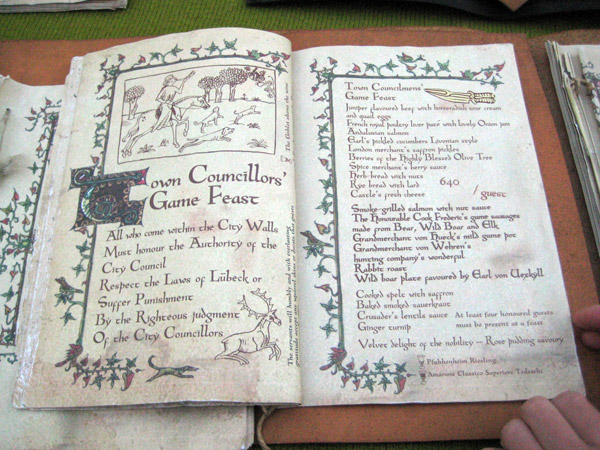 Town Councillors'
Game Feast
All who come within the City Walls
Must honour the Authority of the
City Council
Respect the Laws of Lübeck or
Suffer Punishment
By the Righteous judgment
Of the City Councillors
The servants will humbly and with
gratitude accept any
Town Councilmens'
Game Feast
Juniper flavoured beef with horseradish sour cream
and quail eggs
French royal poultry liver paté with lovely Onion jam
Andalusian salmon
Earl's pickled cucumbers Livonian style
London merchant's saffron pickles
Berries of the Highly Blessed Olive Tree
Spice merchant's berry sauce
Herb bread with nuts
Rye bread with lard
Castle's fresh cheese
640
/guest
Smoke-grilled salmon with nut sauce
The Honourable Cook Frederic's game sausages
made from Bear, Wild Boar and Elk
Grandmerchant von Hueck's mild game pot
Grandmerchant von Wehren's
hunting company's wonderful
Rabbit roast
Wild boar plate favoured by Earl von Uexkyll
Cooked spelt with saffron
Baked smoked sauerkraut
Crusader's lentils sauce
Ginger turnip
At least four honoured guests
must be present at a feast
Velvet delight of the nobility – Rose pudding savoury
Pfaffenheim Riesling
Amarone Classico Superiore Tedeschi